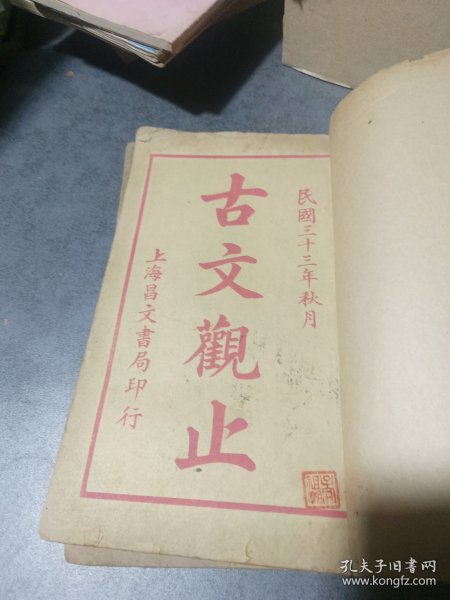 民國三十三年秋月
古文觀止
上海昌文書局印行
孔夫子旧书网
www.kongfz.com